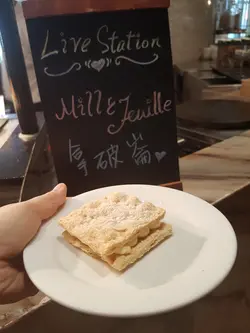 Live Station
Mill & Feuille
拿破崙